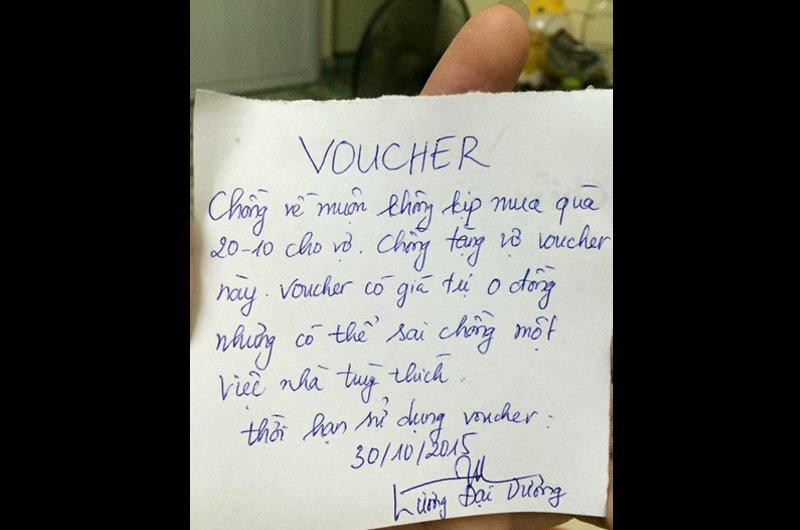 VOUCHER
Chồng về muộn không kịp mua quà
20-10 cho vợ. Chồng tặng vợ voucher
này. Voucher có giá trị 0 đồng
nhưng có thể sai chồng một
việc nhà tuỳ thích.
Thời hạn sử dụng voucher:
30/10/2015
Lương Đại Dương